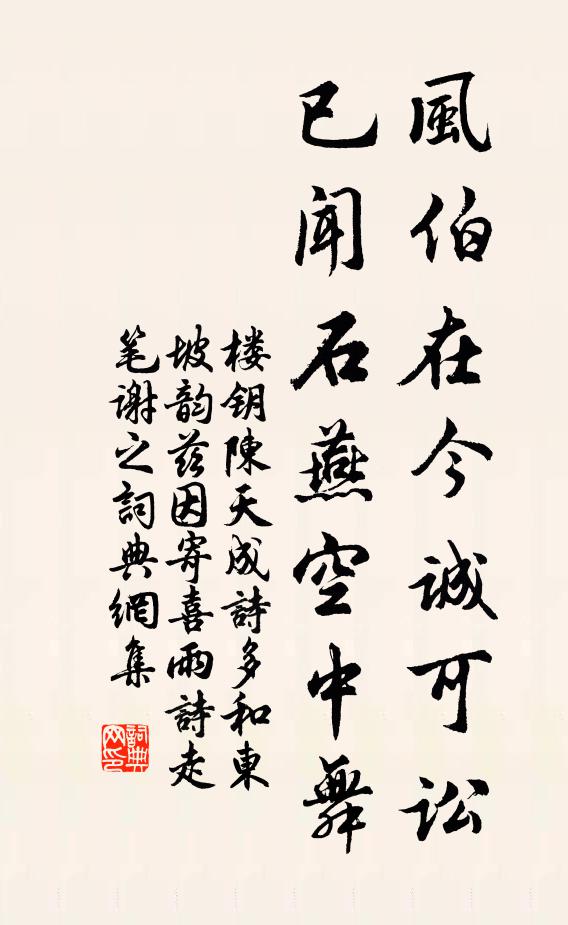 風伯在今誠可訟
已聞石燕空中舞
楼钥陳天成詩多和東
坡韵茲因寄喜雨詩走
笔謝之詞典網集
詞典网印